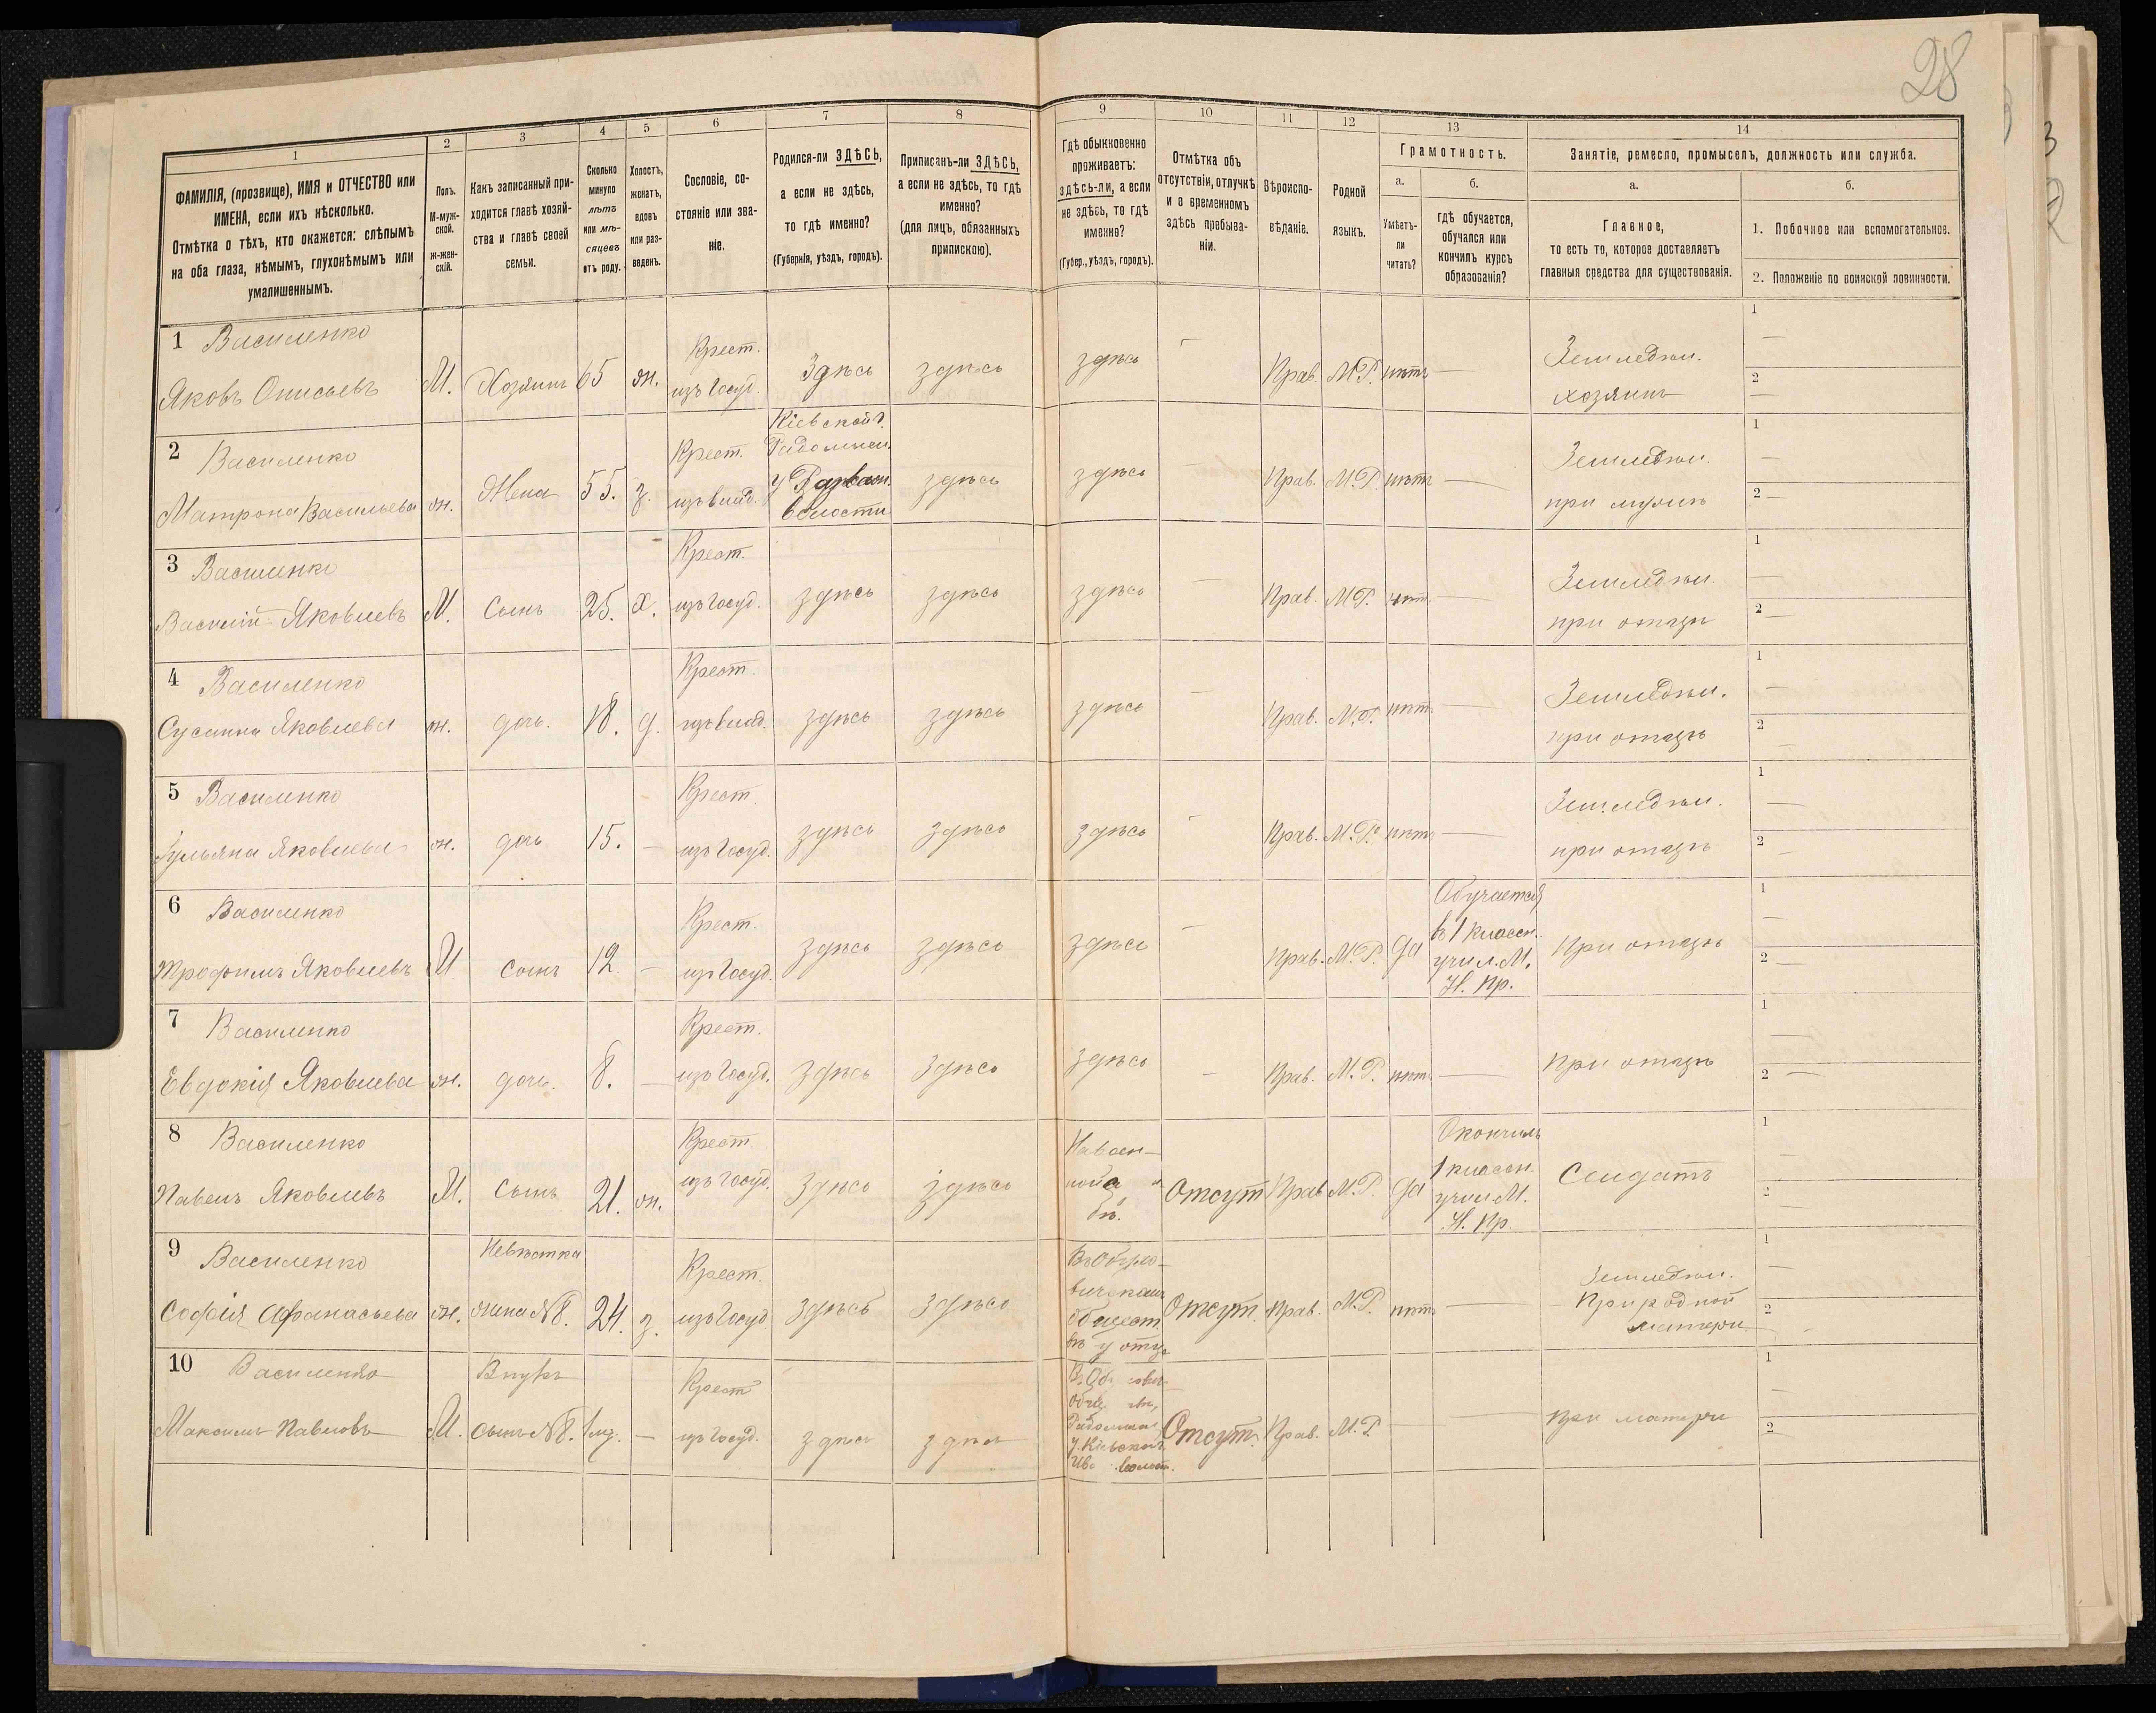 28
1 2 3 4 5 6 7 8 9 10 11 12 13 14
ФАМИЛІЯ, (прозвище), ИМЯ и ОТЧЕСТВО или
ИМЕНА, если ихъ нѣсколько.
Отмѣтка о тѣхъ, кто окажется: слѣпымъ
на оба глаза, нѣмымъ, глухонѣмымъ или
умалишеннымъ.
Полъ.
М-муж-
ской.
ж-жен-
скій.
Какъ записанный при-
ходится главѣ хозяй-
ства и главѣ своей
семьи.
Сколько
минуло
лѣтъ
или мѣ-
сяцевъ
отъ роду.
Холостъ,
женатъ,
вдовъ
или раз-
веденъ.
Сословіе, со-
стояніе или зва-
ніе.
Родился-ли ЗДѢСЬ,
а если не здѣсь,
то гдѣ именно?
(Губернія, уѣздъ, городъ).
Приписанъ-ли ЗДѢСЬ,
а если не здѣсь, то гдѣ
именно?
(для лицъ, обязанныхъ
припискою).
Гдѣ обыкновенно
проживаетъ:
здѣсь-ли, а если
не здѣсь, то гдѣ
именно?
(Губер., уѣздъ, городъ).
Отмѣтка объ
отсутствіи, отлучкѣ
и о временномъ
здѣсь пребыва-
ніи.
Вѣроиспо-
вѣданіе.
Родной
языкъ.
Грамотность.
а.
Умѣетъ-
ли
читать?
б.
гдѣ обучается,
обучался или
кончилъ курсъ
образованія?
Занятіе, ремесло, промыселъ, должность или служба.
а.
Главное,
то есть то, которое доставляетъ
главныя средства для существованія.
б.
1. Побочное или вспомогательное.
2. Положеніе по воинской повинности.
1 Василенко
Яковъ Онисьевъ М. Хозяинъ 65 ж. Крест. изъ Госуд. Здѣсь здѣсь здѣсь Прав. М.Р. нѣтъ Земледѣл. хозяинъ 1 2
2 Василенко
Матрона Васильева ж. Жена 55. з. Крест. изъ влад. Кіевской г. Радомысл. у волости здѣсь здѣсь Прав. М.Р. нѣтъ Земледѣл. при мужѣ 1 2
3 Василенко
Василій Яковлевъ М. Сынъ 25. х. Крест. изъ Госуд. здѣсь здѣсь здѣсь Прав. М.Р. нѣтъ Земледѣл. при отцѣ 1 2
4 Василенко
Сусанна Яковлева ж. дочь. 18. д. Крест. изъ влад. здѣсь здѣсь здѣсь Прав. М.Р. нѣтъ Земледѣл. при отцѣ 1 2
5 Василенко
Ульяна Яковлева ж. дочь 15. Крест. изъ Госуд. здѣсь здѣсь здѣсь Прав. М.Р. нѣтъ Земледѣл. при отцѣ 1 2
6 Василенко
Трофимъ Яковлевъ М. сынъ 12. Крест. изъ Госуд. здѣсь здѣсь здѣсь Прав. М.Р. да Обучается въ 1 классн. учил. М. Н. Пр. При отцѣ 1 2
7 Василенко
Евдокія Яковлева ж. дочь. 8. Крест. изъ Госуд. здѣсь здѣсь здѣсь Прав. М.Р. нѣтъ При отцѣ 1 2
8 Василенко
Павелъ Яковлевъ М. Сынъ 21. ж. Крест. изъ Госуд. Здѣсь здѣсь Отсут. Прав. М.Р. да Окончилъ 1 классн. учил. М. Н. Пр. Солдатъ 1 2
9 Василенко
Софія Афанасьева ж. Невѣстка жена №8. 24. з. Крест. изъ Госуд. здѣсь здѣсь общест вѣ у отца Отсут. Прав. М.Р. нѣтъ Земледѣл. При родной матери 1 2
10 Василенко
Максимъ Павловъ М. Внукъ сынъ №8. 1 мц. Крест. изъ Госуд. здѣсь здѣсь у. Кіевской Отсут. Прав. М.Р. При матери 1 2